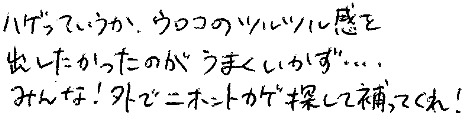 ハゲっていうか、ウロコのツルツル感を
出したかったのが うまくいかず‥‥.
みんな!外でニホントカゲ探して補ってくれ!